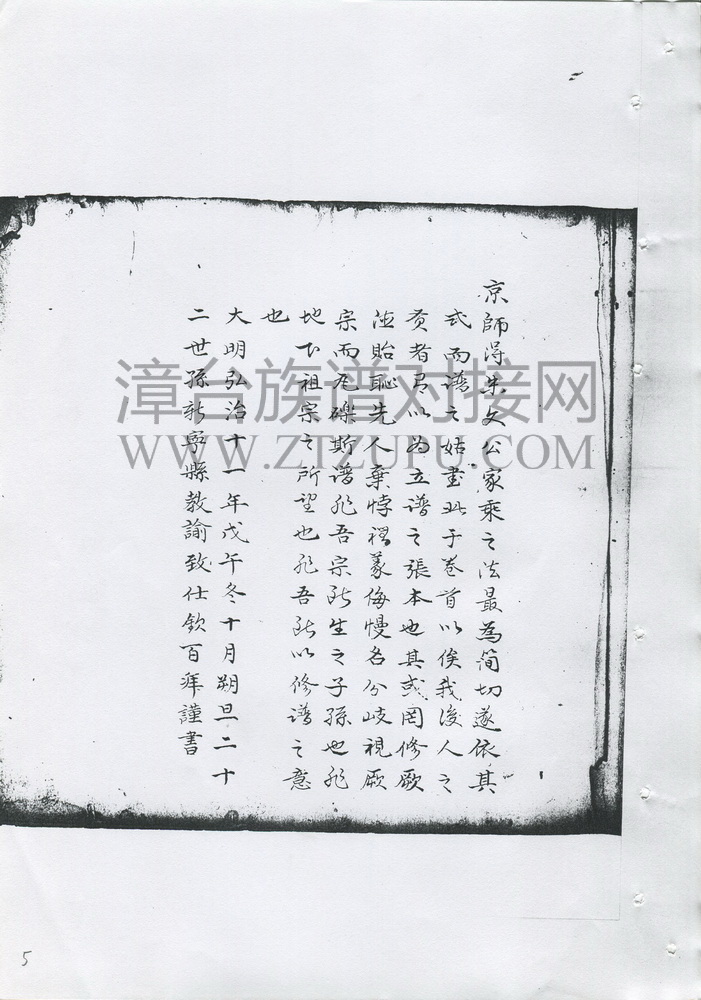 京師得朱文公家乘之法最為簡切遂依其
式而譜之姑書此于卷首以俟我後人之
賁者有以為立譜之張本也其或罔修厥
德貽恥先人棄悖禮義侮慢名分歧視厥
宗而瓦礫斯譜非吾宗所生之子孫也非
地下祖宗之所望也非吾所以修譜之意
也
大明弘治十一年戊午冬十月朔旦二十
二世孫新寧縣教諭致仕欽百拜謹書
漳台族谱对接网
WWW.ZTZUPU.COM
5